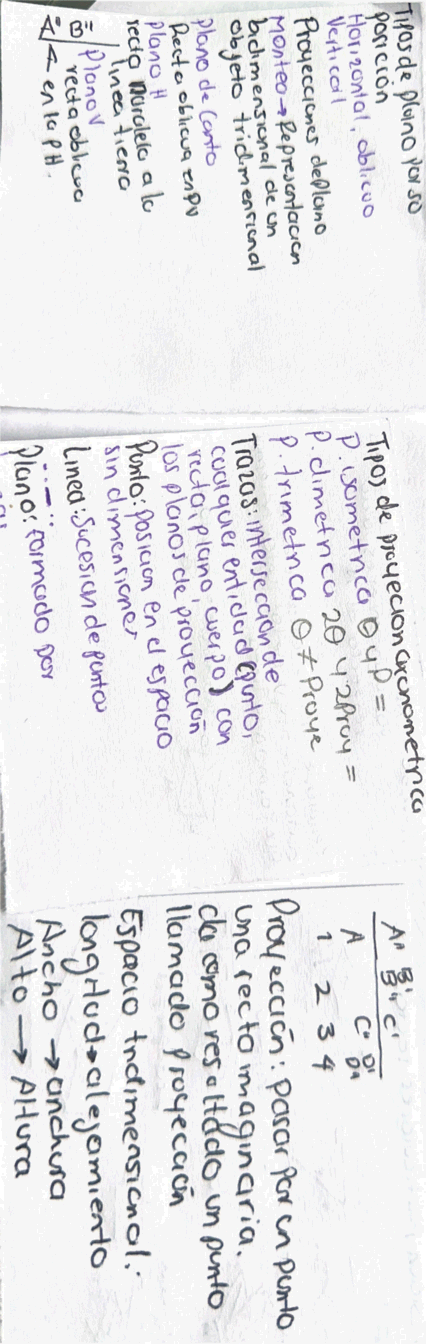 Tipos de plano por so
posición
Horizontal, oblicuo
Vertical
Proyecciones deplano
Monteo→Representación
bidimensional de un
objeto tridimensional
plano de Canto
Recta oblicua en PV
plano H
recta paralela a la
linea tierra
plano V
recta oblicua
A" B"
← en la PH.
Tipos de proyeccion axonometrica
P. isometrica θ y P =
P. dimetrica 2θ y 2Proy =
P. trimetrica θ ≠ Proye
Trazas: interseccion de
cualquier entidad (punto,
recta, plano, cuerpo) con
los planos de proyección
Punto: posicion en el espacio
sin dimensiones
Linea: Sucesion de puntos
Plano: formado por
A" B" C'
B"
A C" D'
D"
1 2 3 4
Proyección: pasar por un punto
una recta imaginaria.
da como resultado un punto
llamado proyección
Espacio tridimensional:
longitud→alejamiento
Ancho → anchura
Alto → Altura